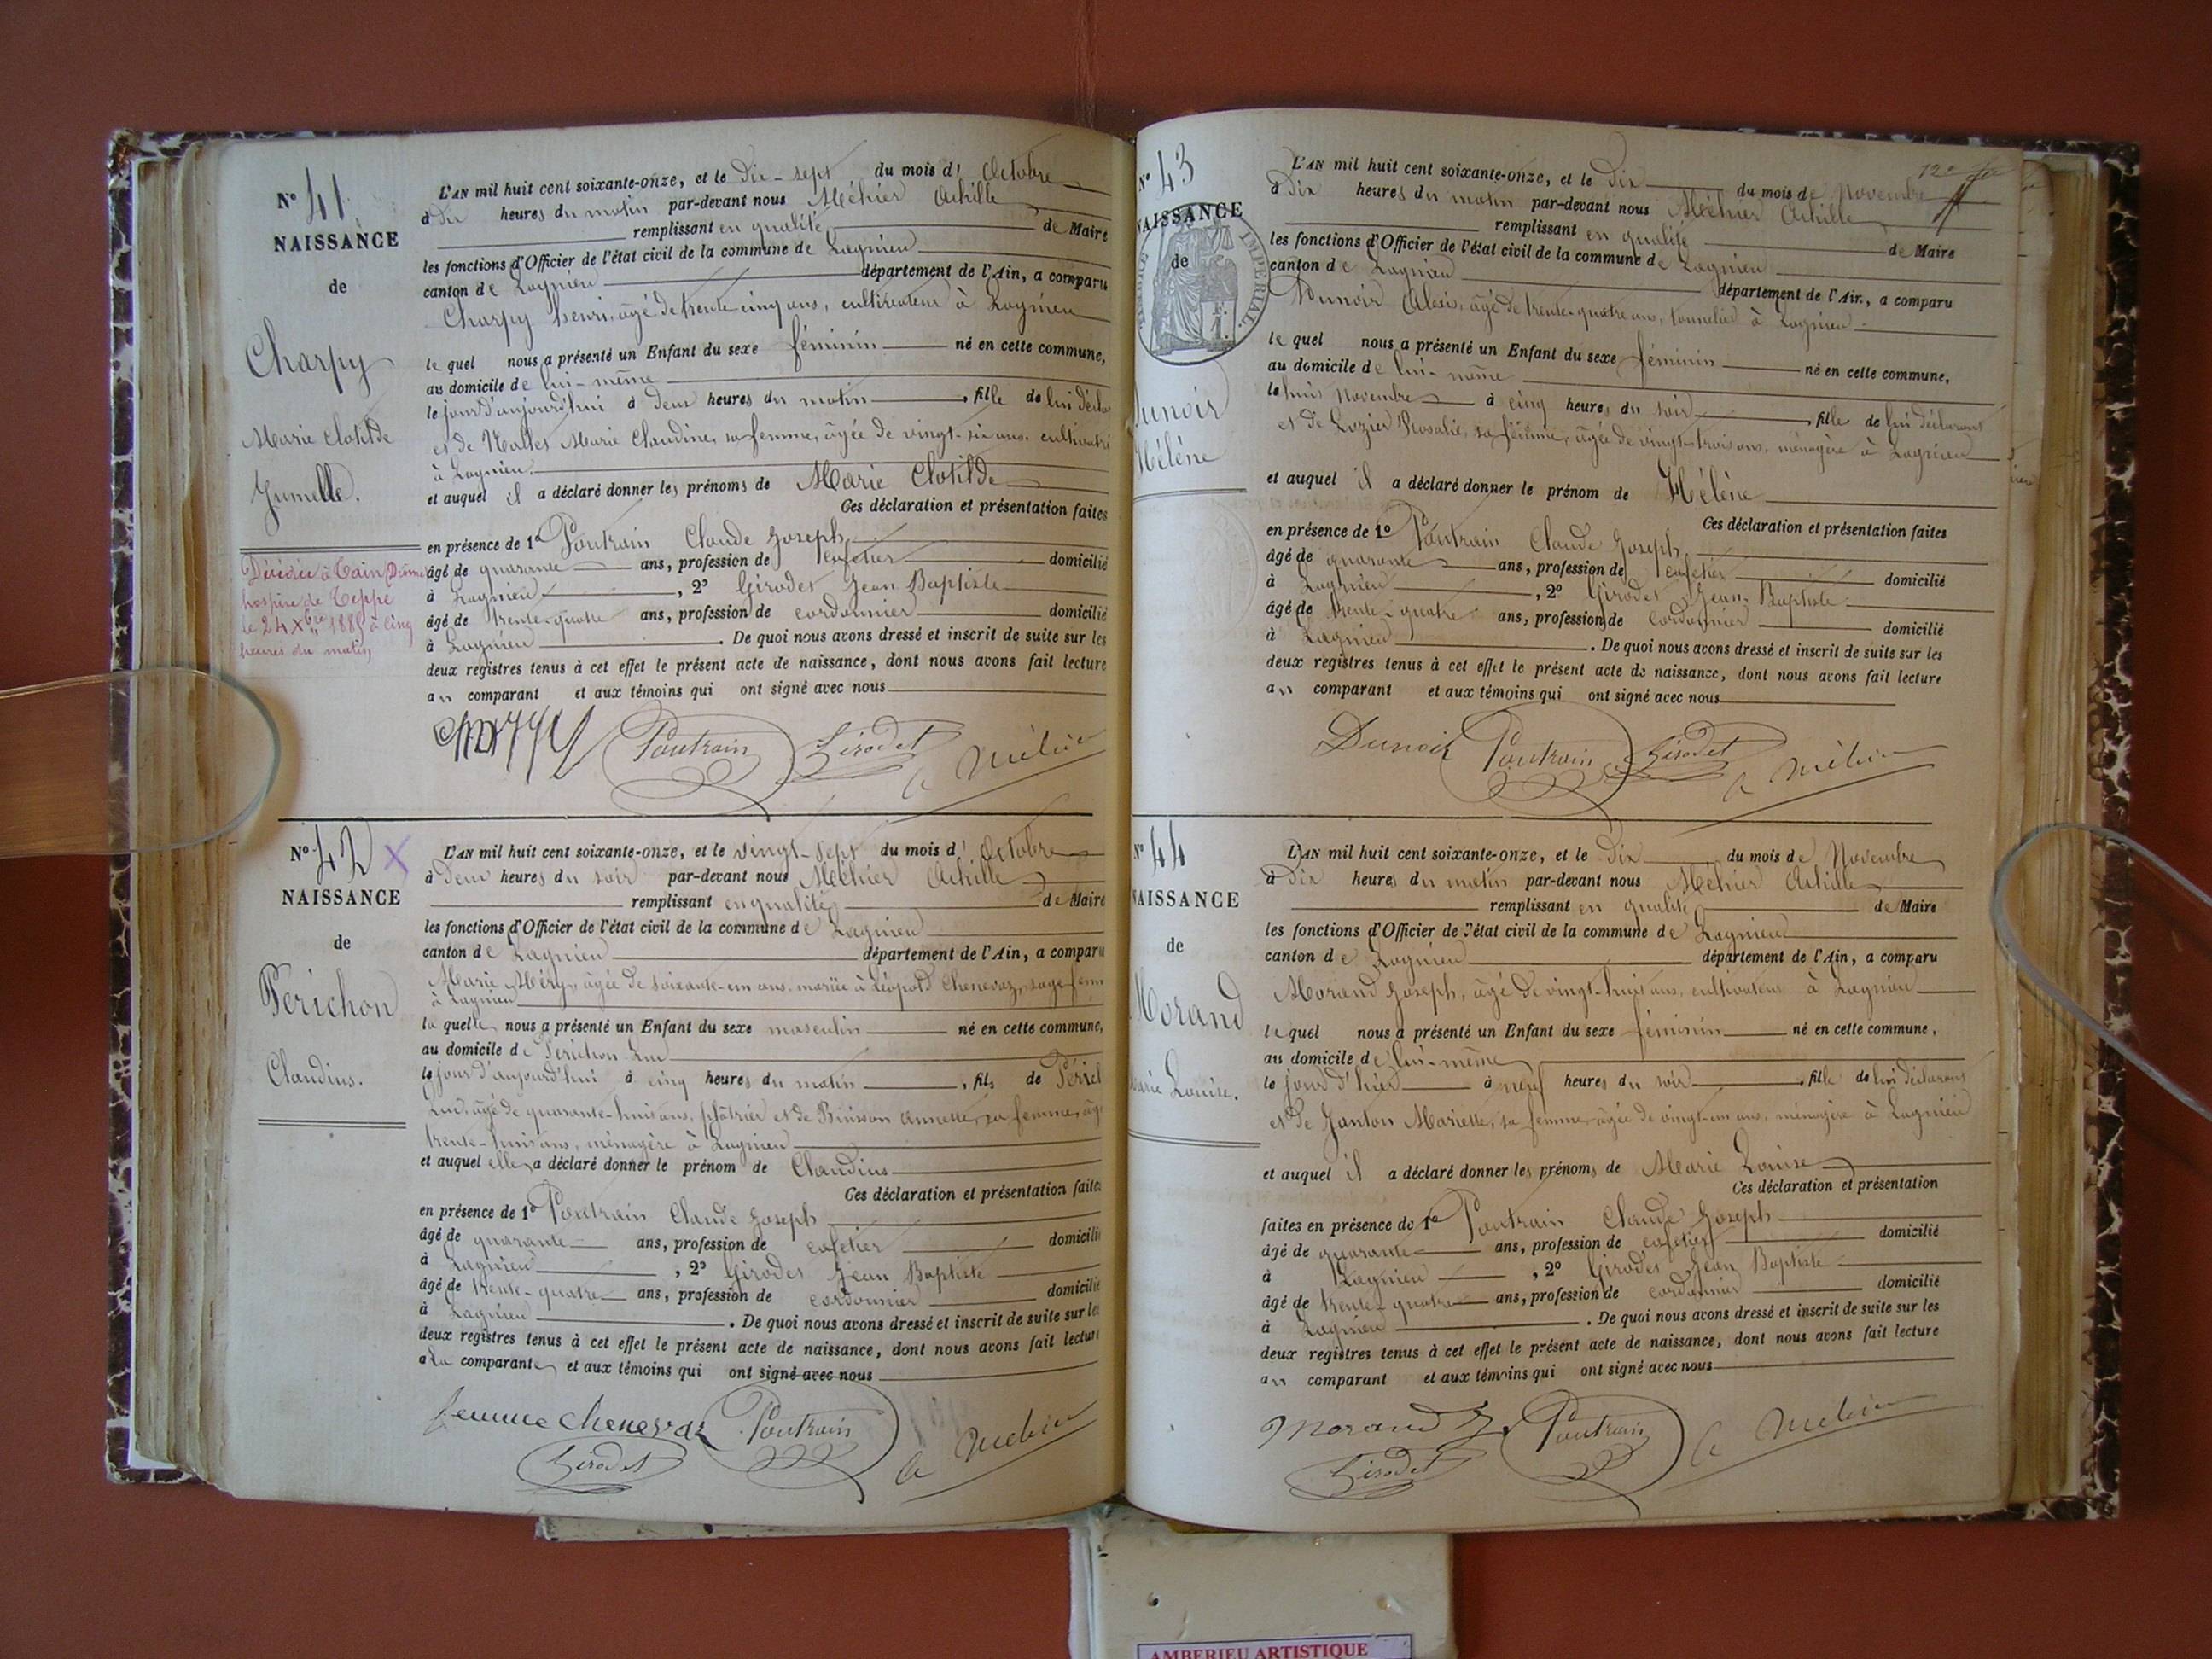 N° 41.
NAISSANCE
de
Charpy
Marie Clotilde
Jumelle.
Décédée à Tain Drôme
hospice de Teppe
à cinq
heures du matin
L'AN mil huit cent soixante-onze, et le Dix-sept du mois d' Octobre
à dix heures du matin par-devant nous Méhier Achille
remplissant en qualité de Maire
les fonctions d'Officier de l'état civil de la commune de Lagnieu
canton de Lagnieu département de l'Ain, a comparu
Charpy henri, âgé de trente-cinq ans, cultivateur à Lagnieu
le quel nous a présenté un Enfant du sexe féminin né en cette commune,
au domicile de lui-même
le jour d'aujourd'hui à deux heures du matin, fille de lui décla
et de Marie Claudine, sa femme, âgée de vingt-six ans, cultivatri
à Lagnieu.
et auquel il a déclaré donner les prénoms de Marie Clotilde
Ces déclaration et présentation faites
en présence de 1° Poutrain Claude Joseph
âgé de quarante ans, profession de cafetier domicilié
à Lagnieu, 2° Girodet Jean Baptiste
âgé de trente-quatre ans, profession de cordonnier domicilié
à Lagnieu. De quoi nous avons dressé et inscrit de suite sur les
deux registres tenus à cet effet le présent acte de naissance, dont nous avons fait lecture
au comparant et aux témoins qui ont signé avec nous
Poutrain Girodet A Méhier
N° 42 X
NAISSANCE
de
Perichon
Claudius.
L'AN mil huit cent soixante-onze, et le vingt-sept du mois d' Octobre
à deux heures du soir par-devant nous Méhier Achille
remplissant en qualité de Maire
les fonctions d'Officier de l'état civil de la commune de Lagnieu
canton de Lagnieu département de l'Ain, a comparu
Marie Méry, âgée de soixante-un ans, mariée à Léopold Chenevaz, sage femm
à Lagnieu
la quelle nous a présenté un Enfant du sexe masculin né en cette commune,
au domicile de Perichon Luc
le jour d'aujourd'hui à cinq heures du matin, fils de Périch
Luc, âgé de quarante-huit ans, plâtrier et de Buisson Annette, sa femme, âgé
trente-huit ans, ménagère à Lagnieu
et auquel elle a déclaré donner le prénom de Claudius
Ces déclaration et présentation faites
en présence de 1° Poutrain Claude Joseph
âgé de quarante ans, profession de cafetier domicilié
à Lagnieu, 2° Girodet Jean Baptiste
âgé de trente-quatre ans, profession de cordonnier domicilié
à Lagnieu. De quoi nous avons dressé et inscrit de suite sur les
deux registres tenus à cet effet le présent acte de naissance, dont nous avons fait lecture
a la comparante et aux témoins qui ont signé avec nous
femme Chenevaz Poutrain
Girodet A Méhier
N° 43
NAISSANCE
de
TIMBRE IMPERIAL.
Dunoir
Hélène
12e
L'AN mil huit cent soixante-onze, et le Dix du mois de Novembre
à dix heures du matin par-devant nous Méhier Achille
remplissant en qualité de Maire
les fonctions d'Officier de l'état civil de la commune de Lagnieu
canton de Lagnieu département de l'Ain, a comparu
Dunoir Alexis, âgé de trente-quatre ans, tonnelier à Lagnieu
le quel nous a présenté un Enfant du sexe féminin né en cette commune,
au domicile de lui-même
le huit Novembre à cinq heures du soir, fille de lui déclarant
et de Lozier Rosalie, sa femme, âgée de vingt-trois ans, ménagère à Lagnieu
et auquel il a déclaré donner le prénom de Hélène
Ces déclaration et présentation faites
en présence de 1° Poutrain Claude Joseph
âgé de quarante ans, profession de cafetier domicilié
à Lagnieu, 2° Girodet Jean-Baptiste
âgé de trente-quatre ans, profession de cordonnier domicilié
à Lagnieu. De quoi nous avons dressé et inscrit de suite sur les
deux registres tenus à cet effet le présent acte de naissance, dont nous avons fait lecture
au comparant et aux témoins qui ont signé avec nous
Dunoir Poutrain Girodet A Méhier
N° 44
NAISSANCE
de
Morand
Marie Louise.
L'AN mil huit cent soixante-onze, et le Dix du mois de Novembre
à dix heures du matin par-devant nous Méhier Achille
remplissant en qualité de Maire
les fonctions d'Officier de l'état civil de la commune de Lagnieu
canton de Lagnieu département de l'Ain, a comparu
Morand Joseph, âgé de vingt-huit ans, cultivateur à Lagnieu
le quel nous a présenté un Enfant du sexe féminin né en cette commune,
au domicile de lui-même
le jour d'hier à neuf heures du soir, fille de lui déclarant
et de Janton Mariette, sa femme, âgée de vingt-un ans, ménagère à Lagnieu
et auquel il a déclaré donner les prénoms de Marie Louise
Ces déclaration et présentation
faites en présence de 1° Poutrain Claude Joseph
âgé de quarante ans, profession de cafetier domicilié
à Lagnieu, 2° Girodet Jean Baptiste
âgé de trente-quatre ans, profession de cordonnier domicilié
à Lagnieu. De quoi nous avons dressé et inscrit de suite sur les
deux registres tenus à cet effet le présent acte de naissance, dont nous avons fait lecture
au comparant et aux témoins qui ont signé avec nous
Morand J. Poutrain A Méhier
Girodet
AMBERIEU ARTISTIQUE